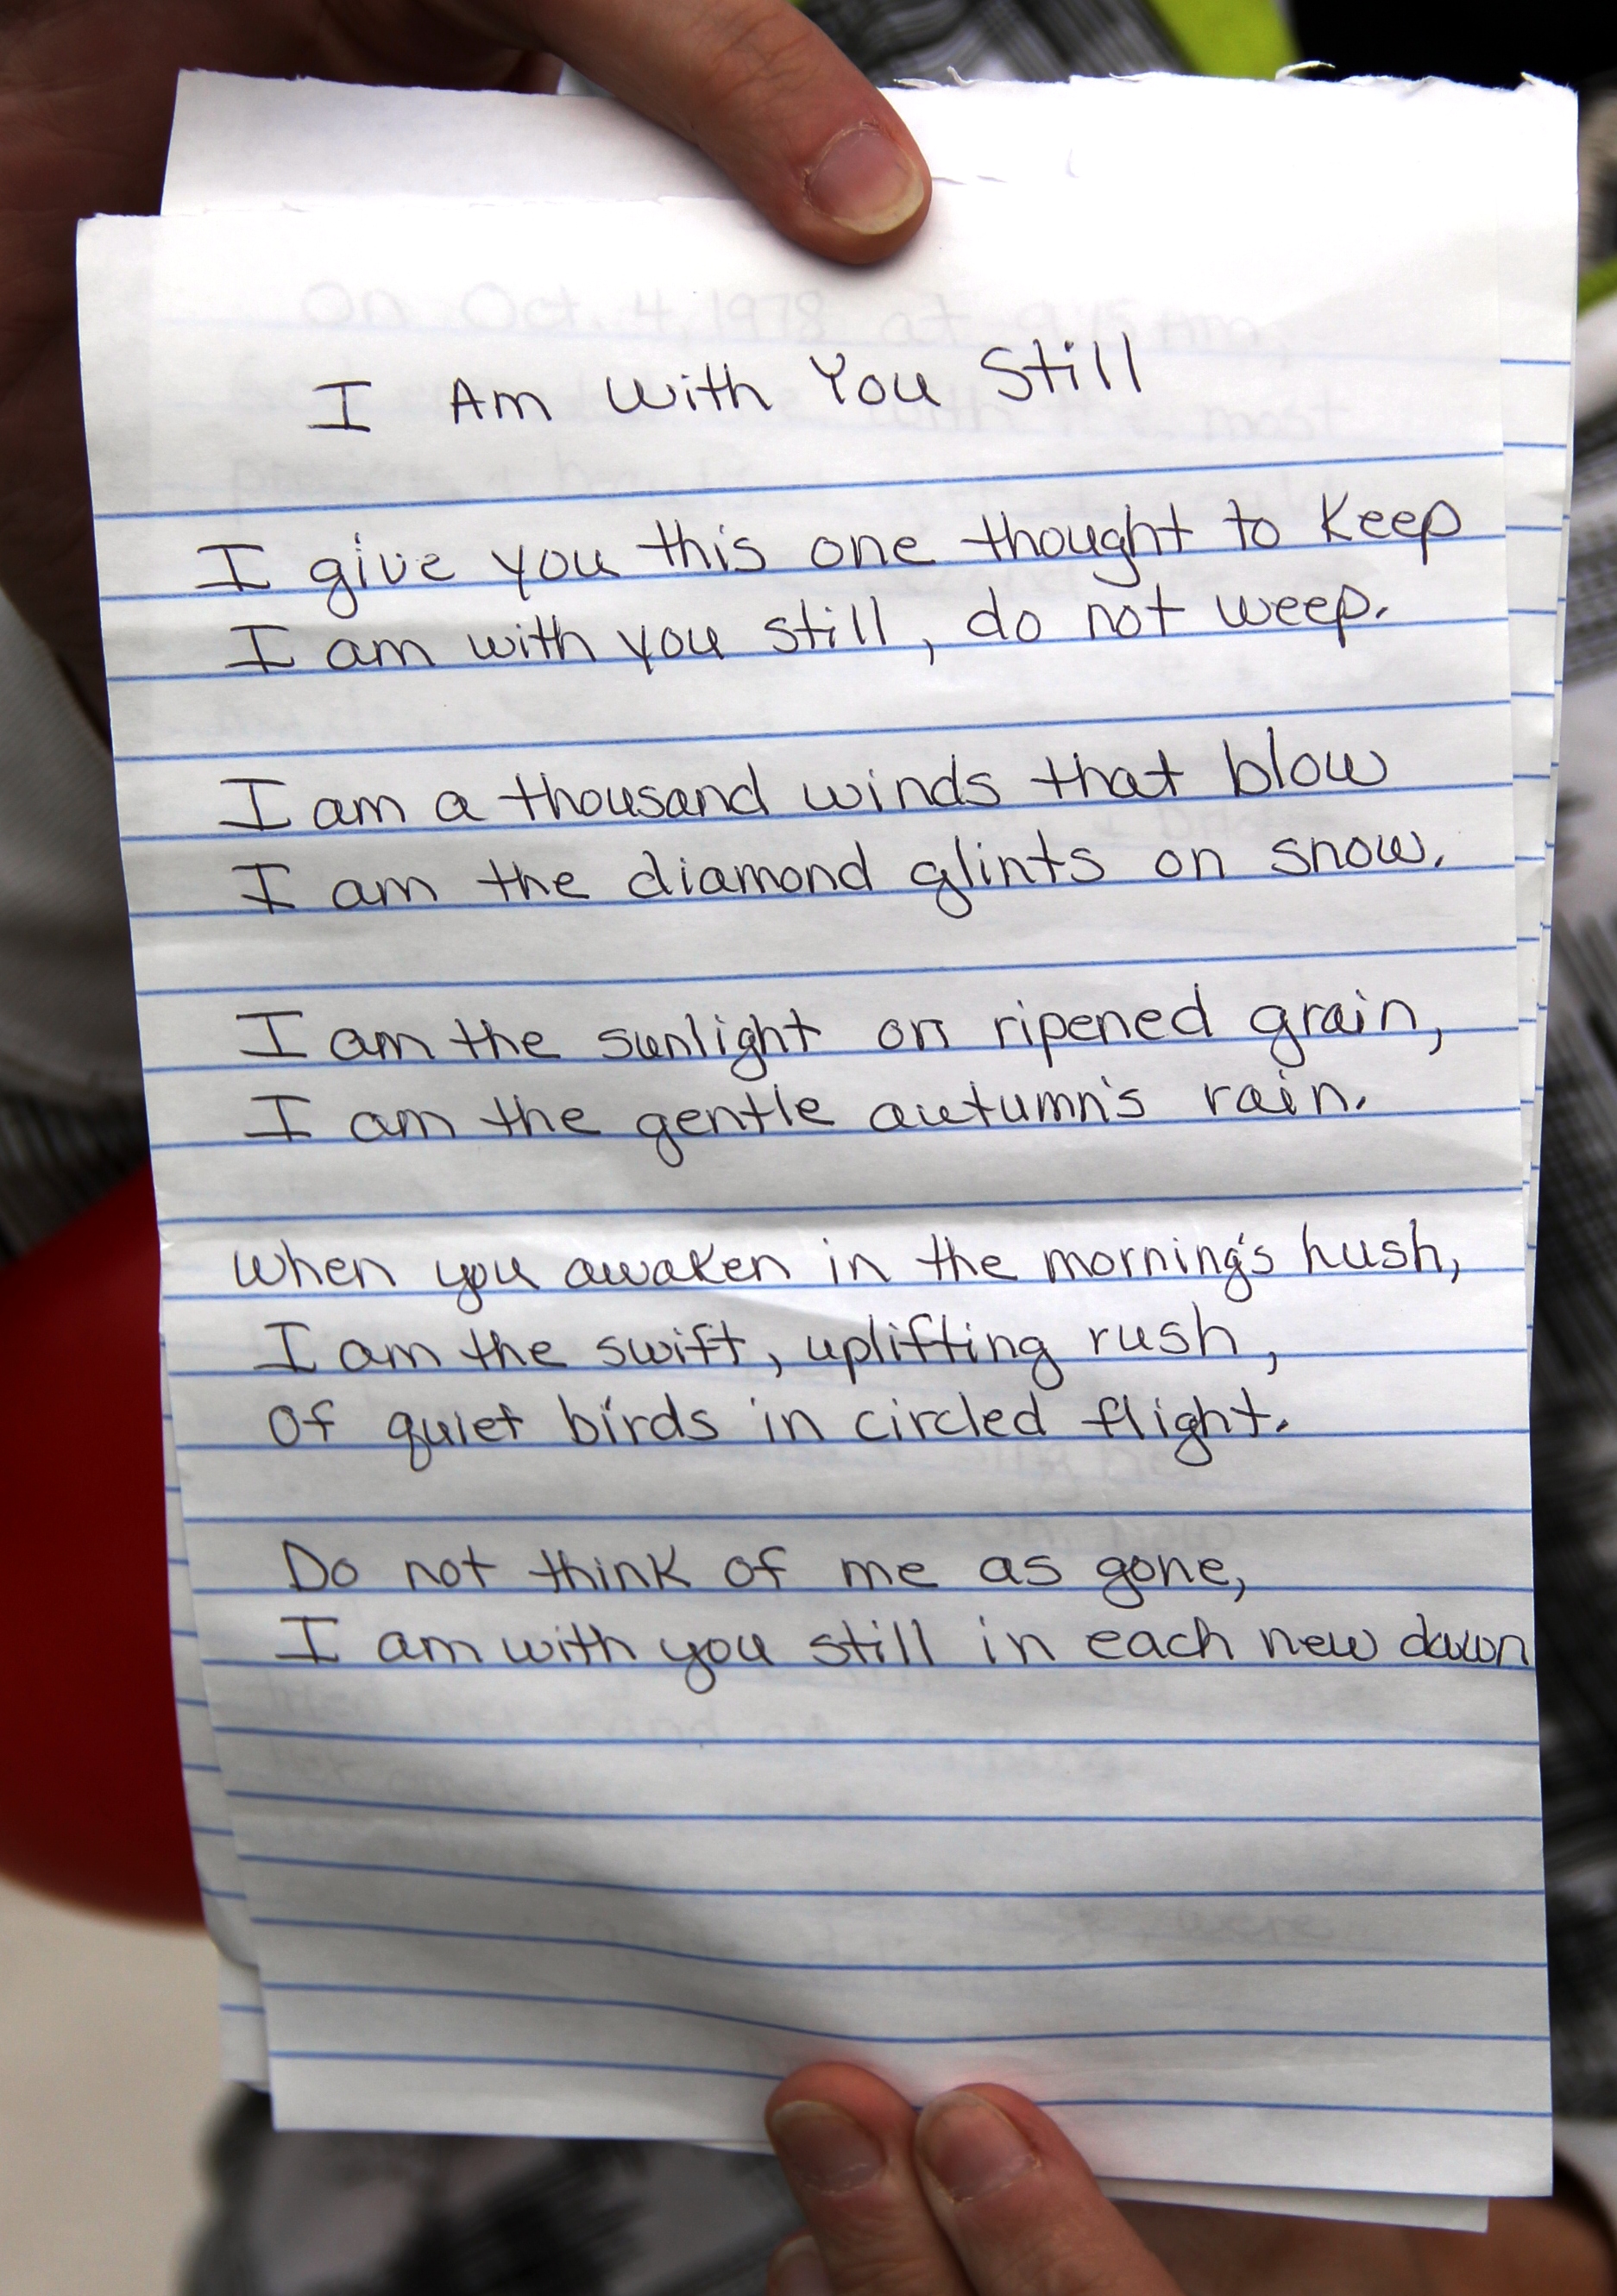 I Am With You Still
I give you this one thought to keep
I am with you still, do not weep.
I am a thousand winds that blow
I am the diamond glints on snow.
I am the sunlight on ripened grain,
I am the gentle autumn's rain.
When you awaken in the morning's hush,
I am the swift, uplifting rush,
Of quiet birds in circled flight.
Do not think of me as gone,
I am with you still in each new dawn
On Oct. 4, 1978 at 9:15 Am,